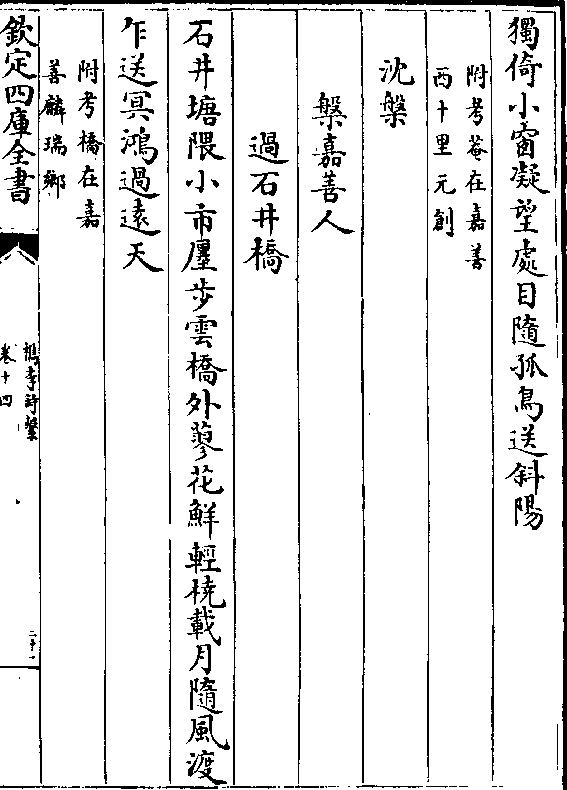 獨倚小窗凝望處目隨孤鳥送斜陽
附考菴在嘉善
西十里元創
沈槃
槃嘉善人
過石井橋
石井塘隈小市廛步雲橋外蓼花鮮輕橈載月隨風渡
乍送冥鴻過遠天
附考橋在嘉
善麟瑞鄉
欽定四庫全書
檇李詩繫
卷十四
二十一